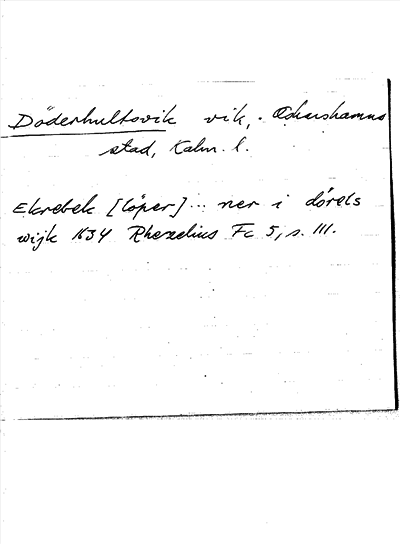 Döderhultsvik vik, Oskarshamns
stad, Kalm. l.
Ekrebek [löper] ... ner i dörels
wijk 1634 Rhezelius Fc 5, s. 111.